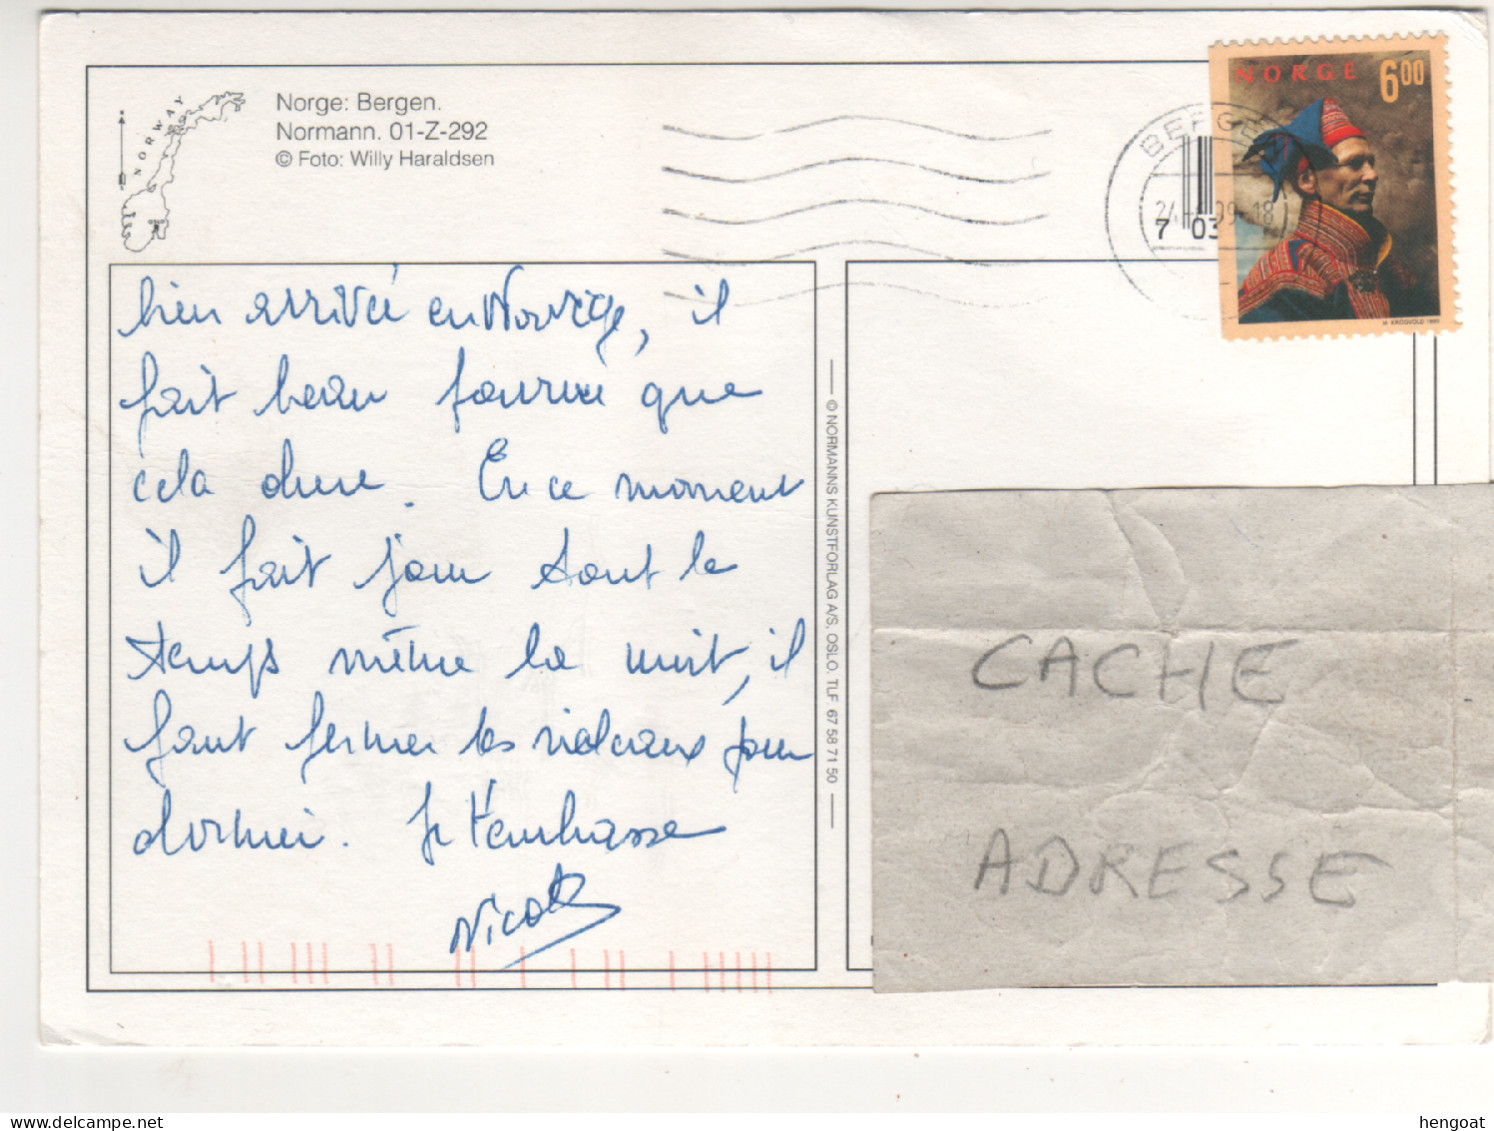 NORWAY
Norge: Bergen.
Normann. 01-Z-292
© Foto: Willy Haraldsen
NORGE 6 00
BERGEN
24 99-18
7 03
M KROGVOLD 1999
bien arrivée en Norvège, il
fait beau pourvu que
cela dure. En ce moment
il fait jour tout le
temps même la nuit, il
faut fermer les rideaux pour
dormir. Je t'embrasse
Nicole
© NORMANNS KUNSTFORLAG A/S, OSLO. TLF 67 58 71 50
CACHE
ADRESSE
hengoat